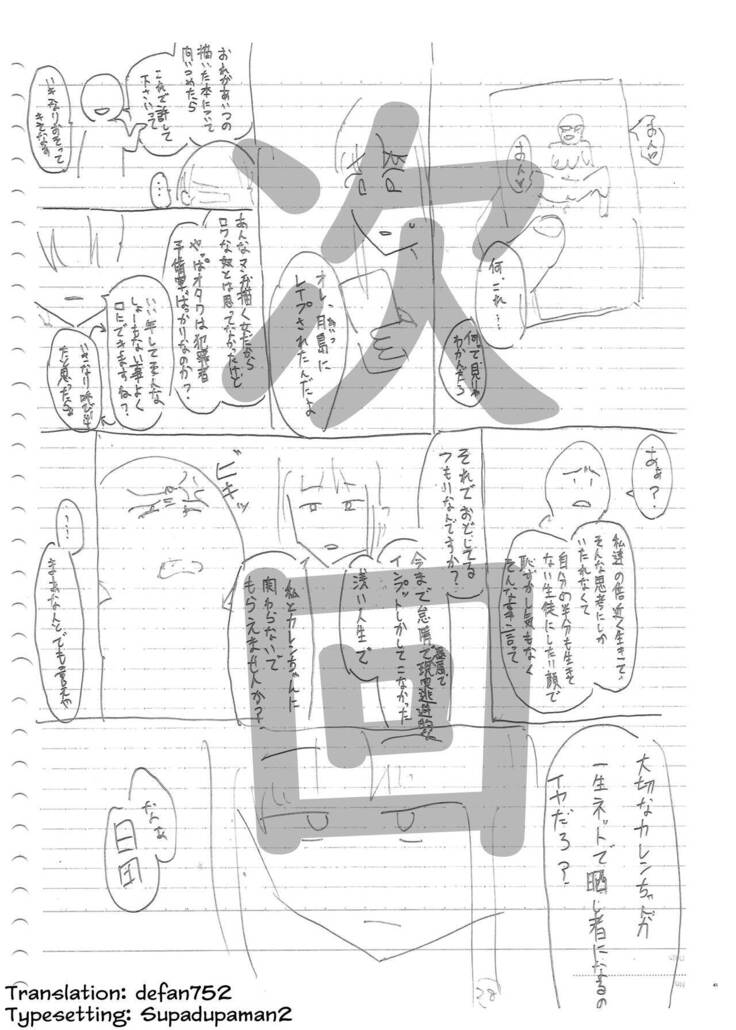 何、これ…
何って見りゃ
わかんだろ
オレ、月島に
あいつ
レイプされたんだよ
おれがあいつの
描いた本について
問いつめたら
これで許して
下さいって
いきなりおそって
きてなぁ
…
あんなマンガ描く女だから
ロクな奴とは思ってなかったけど
やっぱオタクは犯罪者
予備軍ばっかりなのか?
いい年してそんな
しょーもない事よく
口にできますね?
いきなり呼び出し
たと思ったら
あぁ?
私達の倍近く生きて、
そんな思考にしか
いたれなくて
自分の半分も生きて
ない生徒にしたり顔で
恥ずかし気もなく
そんな事言って
それでおどしてる
つもりなんですか?
今まで怠惰で
現実逃避的な
インプットしかしてこなかった
浅い人生で
私とカレンちゃんに
関わらないで
もらえませんか?
ビキッ
…
まぁなんとでも言えや
大切なカレンちゃんが
一生ネットで晒し者になるの
イヤだろ?
なんあ
日田
次回
28
Translation: defan752
Typesetting: Supadupaman2